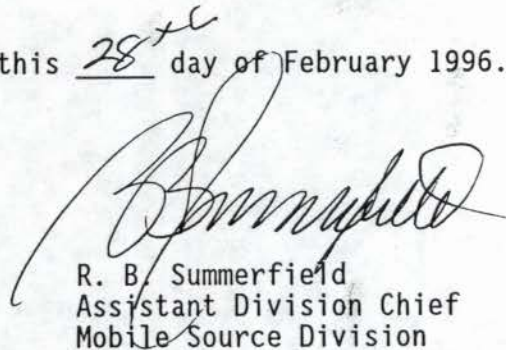 this 28th day of February 1996.
R. B. Summerfield
R. B. Summerfield
Assistant Division Chief
Mobile Source Division